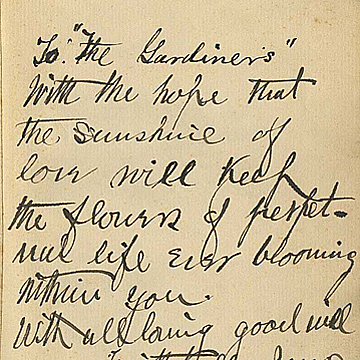 To: "The Gardiners"
With the hope that
the sunshine of
love will keep
the flowers of perpet-
ual life ever blooming
within you.
With all loving good will